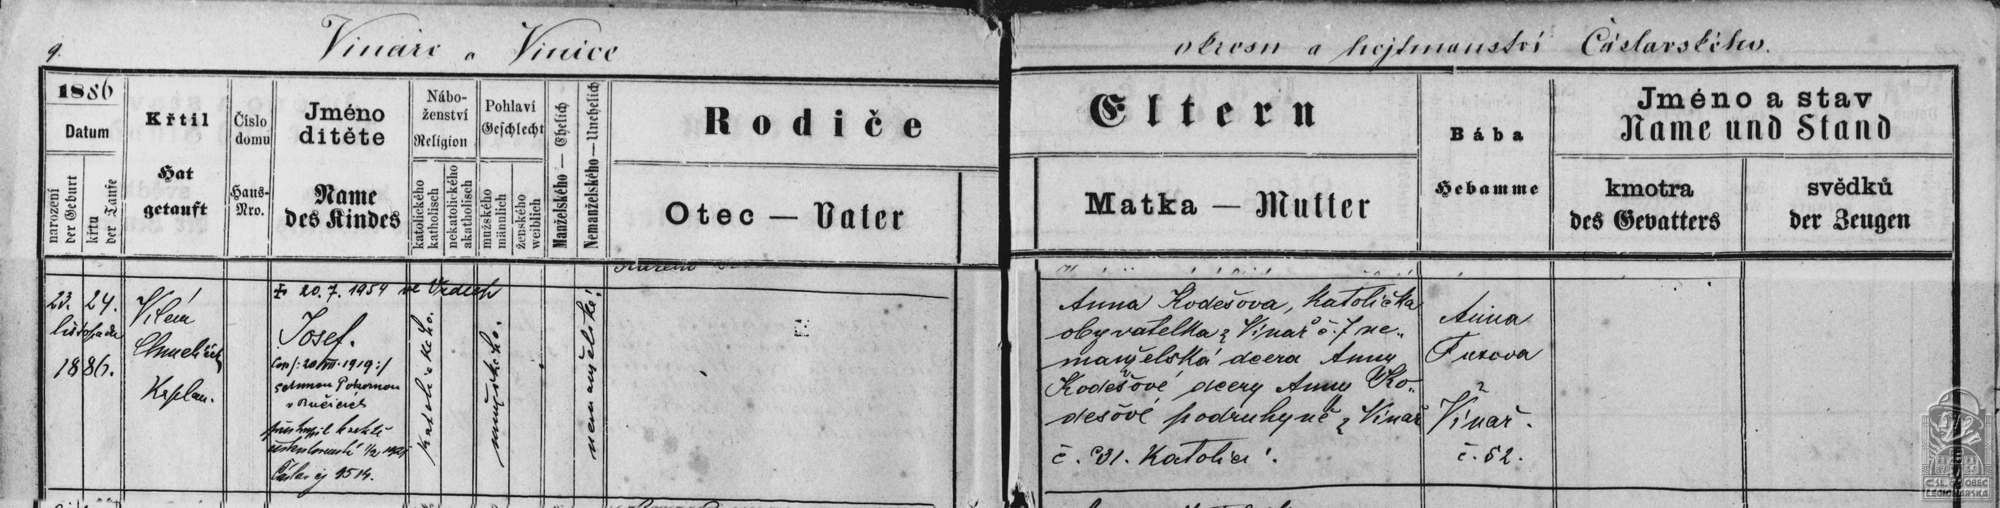 9.
Vinaře a Vinice
okresu a hejtmanství Čáslavského.
1886
Datum
narození
der Geburt
křtu
der Taufe
Křtil
Hat
getauft
Číslo
domu
Haus-
Nro.
Jméno
dítěte
Name
des Kindes
Nábo-
ženství
Religion
katolického
katholisch
nekatolického
akatholisch
Pohlaví
Geschlecht
mužského
männlich
ženského
weiblich
Manželského — Ehelich
Nemanželského — Unehelich
Rodiče
Eltern
Otec — Vater
Matka — Mutter
Bába
Hebamme
Jméno a stav
Name und Stand
kmotra
des Gevatters
svědků
der Zeugen
23. 24.
listopadu
1886.
Vilém
Kaplan.
+ 20.7.1954 ve Vrdech
Josef.
katolického.
mužského.
nemanželské!
Anna Kodešova, katolička
obyvatelka z Vinař č. 7 ne-
manželská dcera Anny
Kodešové dcery Anny Ko-
dešové podruhyně z Vinař
č. 31. Katolici.
Anna
Vinař.
č. 52.
ČSL. OBEC
LEGIONÁŘSKÁ